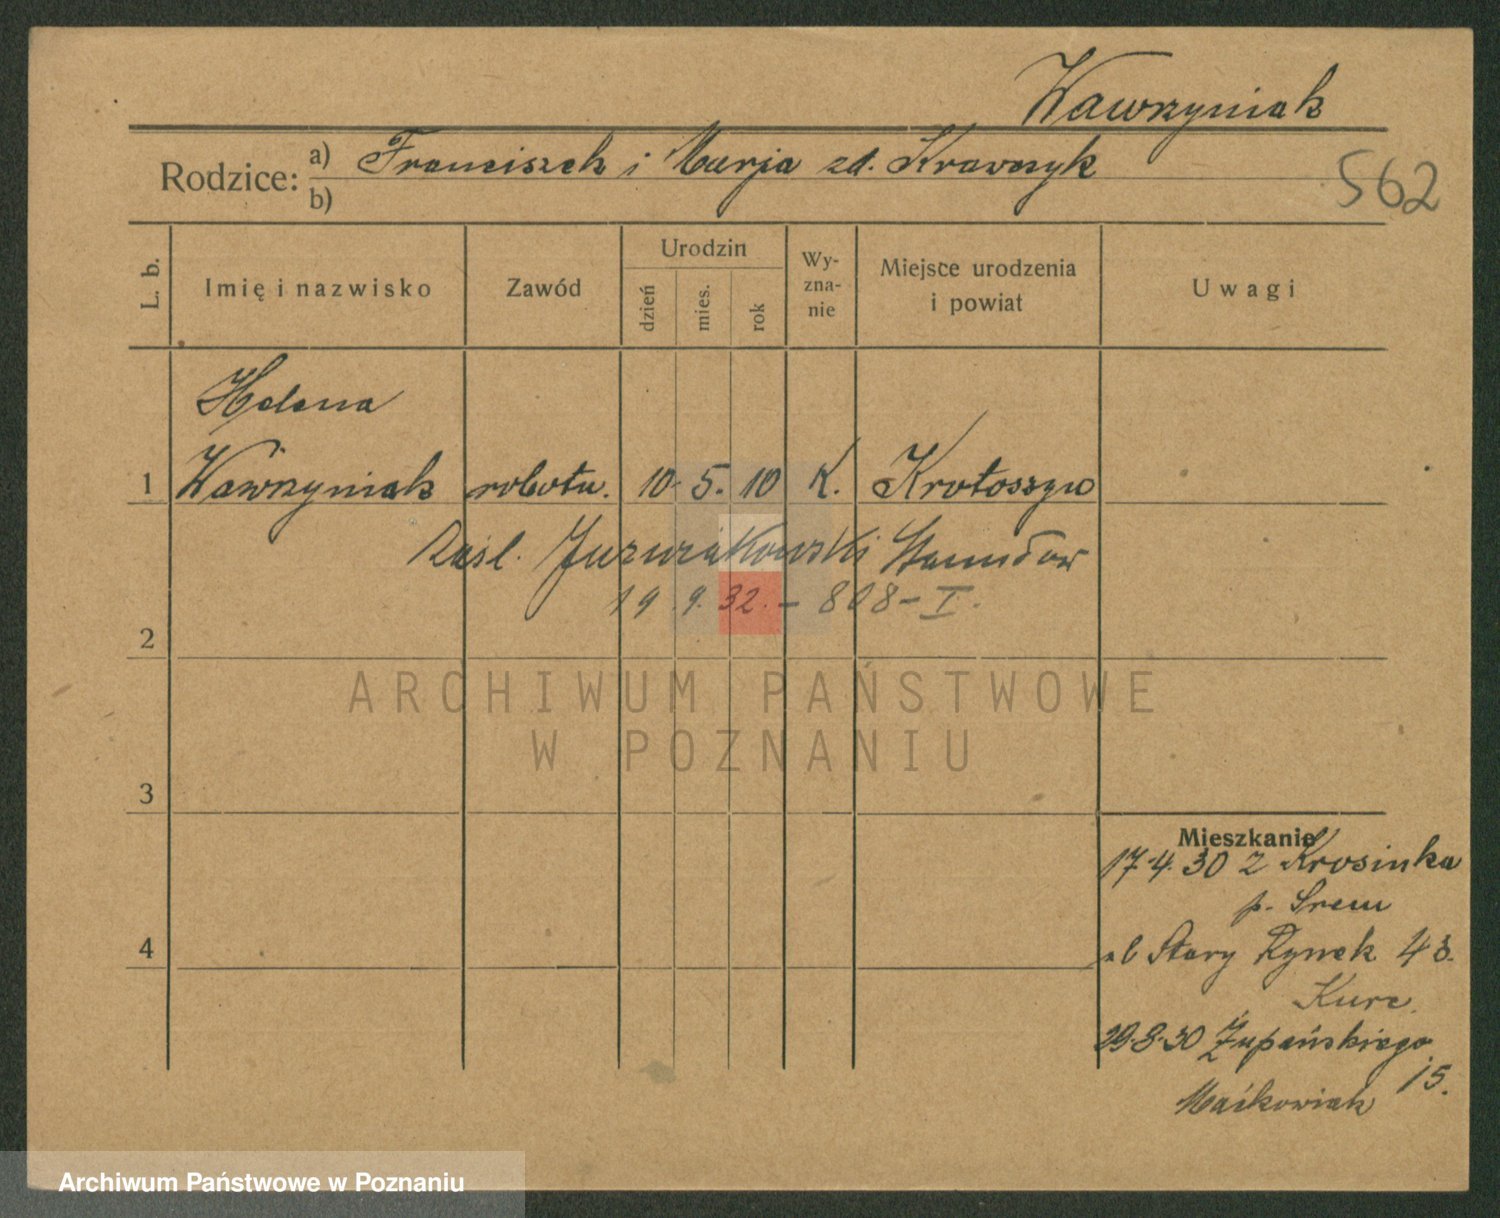 Wawrzyniak
Rodzice: a) Franciszek i Marja zd. Krawczyk
b)
562
L. b. Imię i nazwisko Zawód Urodzin dzień mies. rok Wyznanie Miejsce urodzenia i powiat Uwagi
Helena
1 Wawrzyniak robotn. 10. 5. 10 K. Krotoszyn
Zaśl. Stanisław
19 9. 32. - 808 - I.
2
ARCHIWUM PAŃSTWOWE
W POZNANIU
3
Mieszkanie
17.4.30 z Krosinka
p. Śrem
Stary Rynek 43.
Kurc
4
29.8.30 Żupańskiego
15.
Maćkowiak
Archiwum Państwowe w Poznaniu